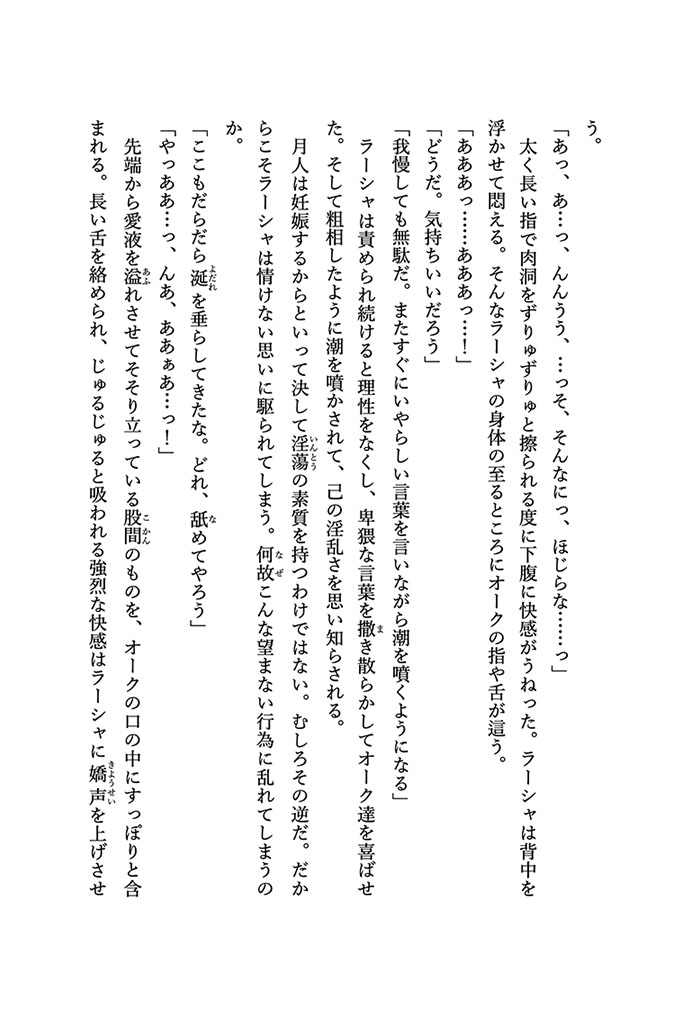 う。
「あっ、あ…っ、んんうう、…っそ、そんなにっ、ほじらな……っ」
太く長い指で肉洞をずりゅずりゅと擦られる度に下腹に快感がうねった。ラーシャは背中を
浮かせて悶える。そんなラーシャの身体の至るところにオークの指や舌が這う。
「あああっ……あああっ…！」
「どうだ。気持ちいいだろう」
「我慢しても無駄だ。またすぐにいやらしい言葉を言いながら潮を噴くようになる」
ラーシャは責められ続けると理性をなくし、卑猥な言葉を撒き散らかしてオーク達を喜ばせ
た。そして粗相したように潮を噴かされて、己の淫乱さを思い知らされる。
月人は妊娠するからといって決して淫蕩の素質を持つわけではない。むしろその逆だ。だか
らこそラーシャは情けない思いに駆られてしまう。何故こんな望まない行為に乱れてしまうの
か。
「ここもだらだら涎を垂らしてきたな。どれ、舐めてやろう」
「やっああ…っ、んあ、ああぁあ…っ！」
先端から愛液を溢れさせてそそり立っている股間のものを、オークの口の中にすっぽりと含
まれる。長い舌を絡められ、じゅるじゅると吸われる強烈な快感はラーシャに嬌声を上げさせ